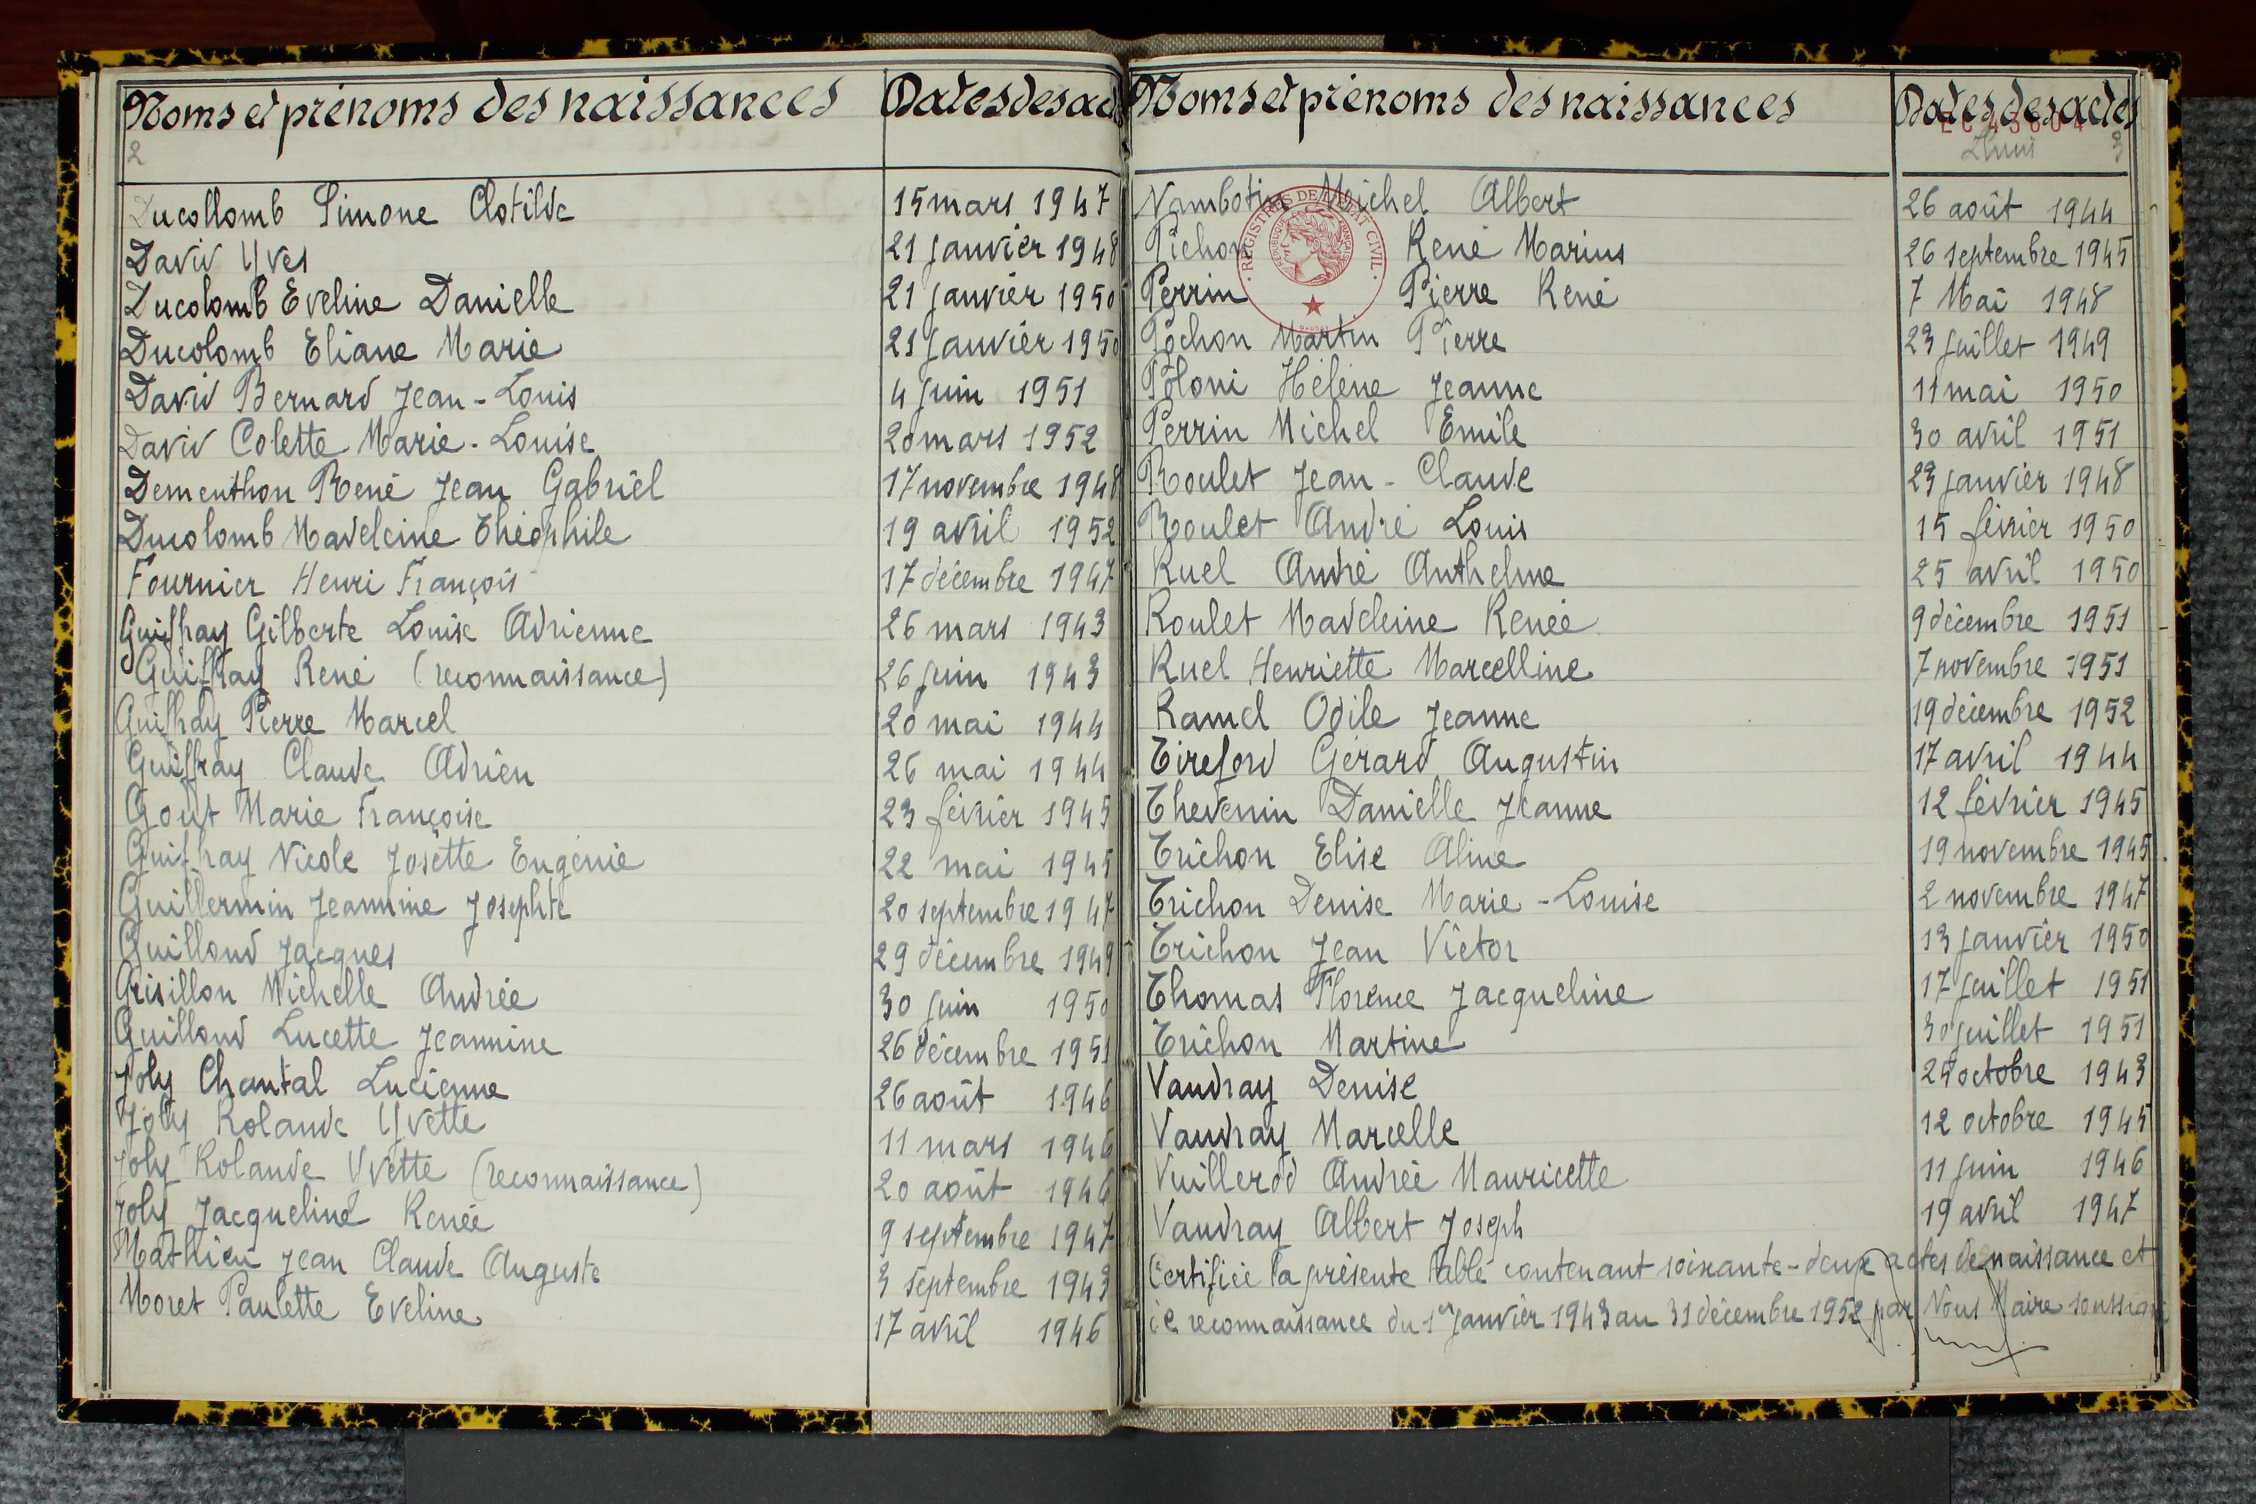 Noms et prénoms des naissances
Dates des ac
2
Ducollomb Simone Clotilde 15 mars 1947
David Yves 21 janvier 1948
Ducolomb Eveline Danielle 21 janvier 1950
Ducolomb Eliane Marie 21 janvier 1950
David Bernard Jean-Louis 4 juin 1951
David Colette Marie-Louise 20 mars 1952
Dementhon René Jean Gabriel 17 novembre 1948
Ducolomb Madeleine Théophile 19 avril 1952
Fournier Henri François 17 décembre 1947
Guiffray Gilberte Louise Adrienne 26 mars 1943
Guiffray René (reconnaissance) 26 juin 1943
Guiffray Pierre Marcel 20 mai 1944
Guiffray Claude Adrien 26 mai 1944
Gout Marie Françoise 23 février 1945
Guiffray Nicole Josette Eugénie 22 mai 1945
Guillermin Jeannine Josephte 20 septembre 1947
Guilloud Jacques 29 décembre 1949
Grisillon Michelle Andrée 30 juin 1950
Guilloud Lucette Jeannine 26 décembre 1951
Joly Chantal Lucienne 26 août 1946
Joly Rolande Yvette 11 mars 1946
Joly Rolande Yvette (reconnaissance) 20 août 1946
Joly Jacqueline Renée 9 septembre 1947
Mathieu Jean Claude Auguste 3 septembre 1943
Moret Paulette Eveline 17 avril 1946
Noms et prénoms des naissances
Dates des actes
3
REGISTRES DE L'ÉTAT CIVIL
Nambotin Michel Albert 26 août 1944
Pichon René Marius 26 septembre 1945
Perrin Pierre René 7 Mai 1948
Pochon Martin Pierre 23 juillet 1949
Poloni Hélène Jeanne 11 mai 1950
Perrin Michel Emile 30 avril 1951
Roulet Jean-Claude 23 janvier 1948
Roulet André Louis 15 février 1950
Ruel André Anthelme 25 avril 1950
Roulet Madeleine Renée 9 décembre 1951
Ruel Henriette Marcelline 7 novembre 1951
Ramel Odile Jeanne 19 décembre 1952
Tireford Gérard Augustin 17 avril 1944
Thevenin Danielle Jeanne 12 février 1945
Trichon Elise Aline 19 novembre 1945
Trichon Denise Marie-Louise 2 novembre 1947
Trichon Jean Victor 13 janvier 1950
Thomas Florence Jacqueline 17 juillet 1951
Trichon Martine 30 juillet 1951
Vaudray Denise octobre 1943
Vaudray Marcelle 12 octobre 1945
Vuillerod Andrée Mauricette 11 juin 1946
Vaudray Albert Joseph 19 avril 1947
Certifiée la présente table contenant soixante-deux actes de naissance et
de reconnaissance du 1er janvier 1943 au 31 décembre 1952 par Nous Maire soussigné